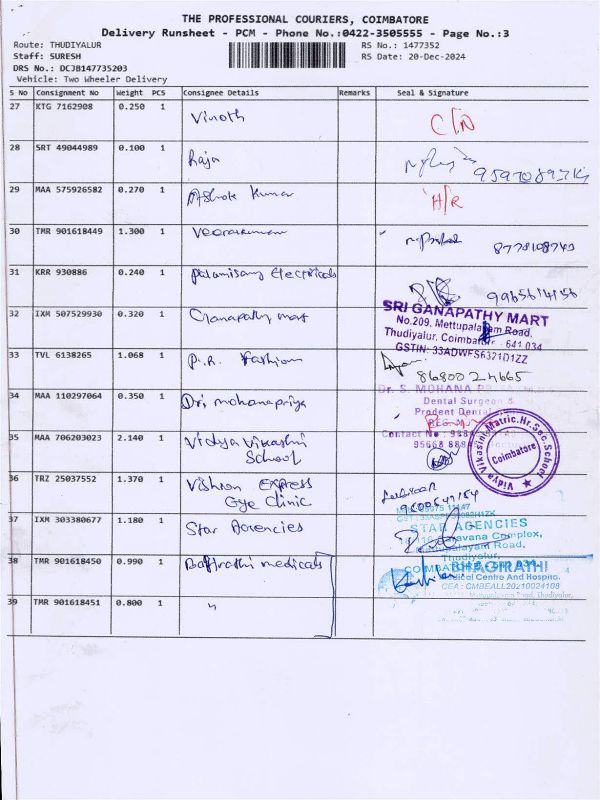 THE PROFESSIONAL COURIERS, COIMBATORE
Delivery Runsheet - PCM - Phone No.:0422-3505555 - Page No.:3
Route: THUDIYALUR RS No.: 1477352
Staff: SURESH RS Date: 20-Dec-2024
DRS No.: DCJB147735203
Vehicle: Two Wheeler Delivery
S No Consignment No Weight PCS Consignee Details Remarks Seal & Signature
27 KTG 7162908 0.250 1 Vinoth C/N
28 SRT 49044989 0.100 1 Raja
29 MAA 575926582 0.270 1 Ashok Kumar H/R
30 TMR 901618449 1.300 1 Veerakumar
31 KRR 930886 0.240 1 Palanisamy Electricals
32 IXM 507529930 0.320 1 Ganapathy mart
SRI GANAPATHY MART
No.209, Mettupalayam Road,
Thudiyalur, Coimbatore - 641 034
GSTIN: 33ADWFS6321D1ZZ
33 TVL 6138265 1.068 1 P.R. Fashion
86800 24665
34 MAA 110297064 0.350 1 Dr. mohanapriya
Dr. S. MOHANA
Dental Surgeon &
Contact No
35 MAA 706203023 2.140 1 Vidya Vikashni
School
Vidya Vikasini Matric.Hr.Sec.School
Coimbatore
36 TRZ 25037552 1.370 1 Vishion Express
Eye Clinic
37 IXM 303380677 1.180 1 Star Agencies
STAR AGENCIES
Complex,
Road,
Thudiyalur,
38 TMR 901618450 0.990 1 Bagirathi medicals
BHAGIRATHI
Medical Centre And Hospital
39 TMR 901618451 0.800 1 "